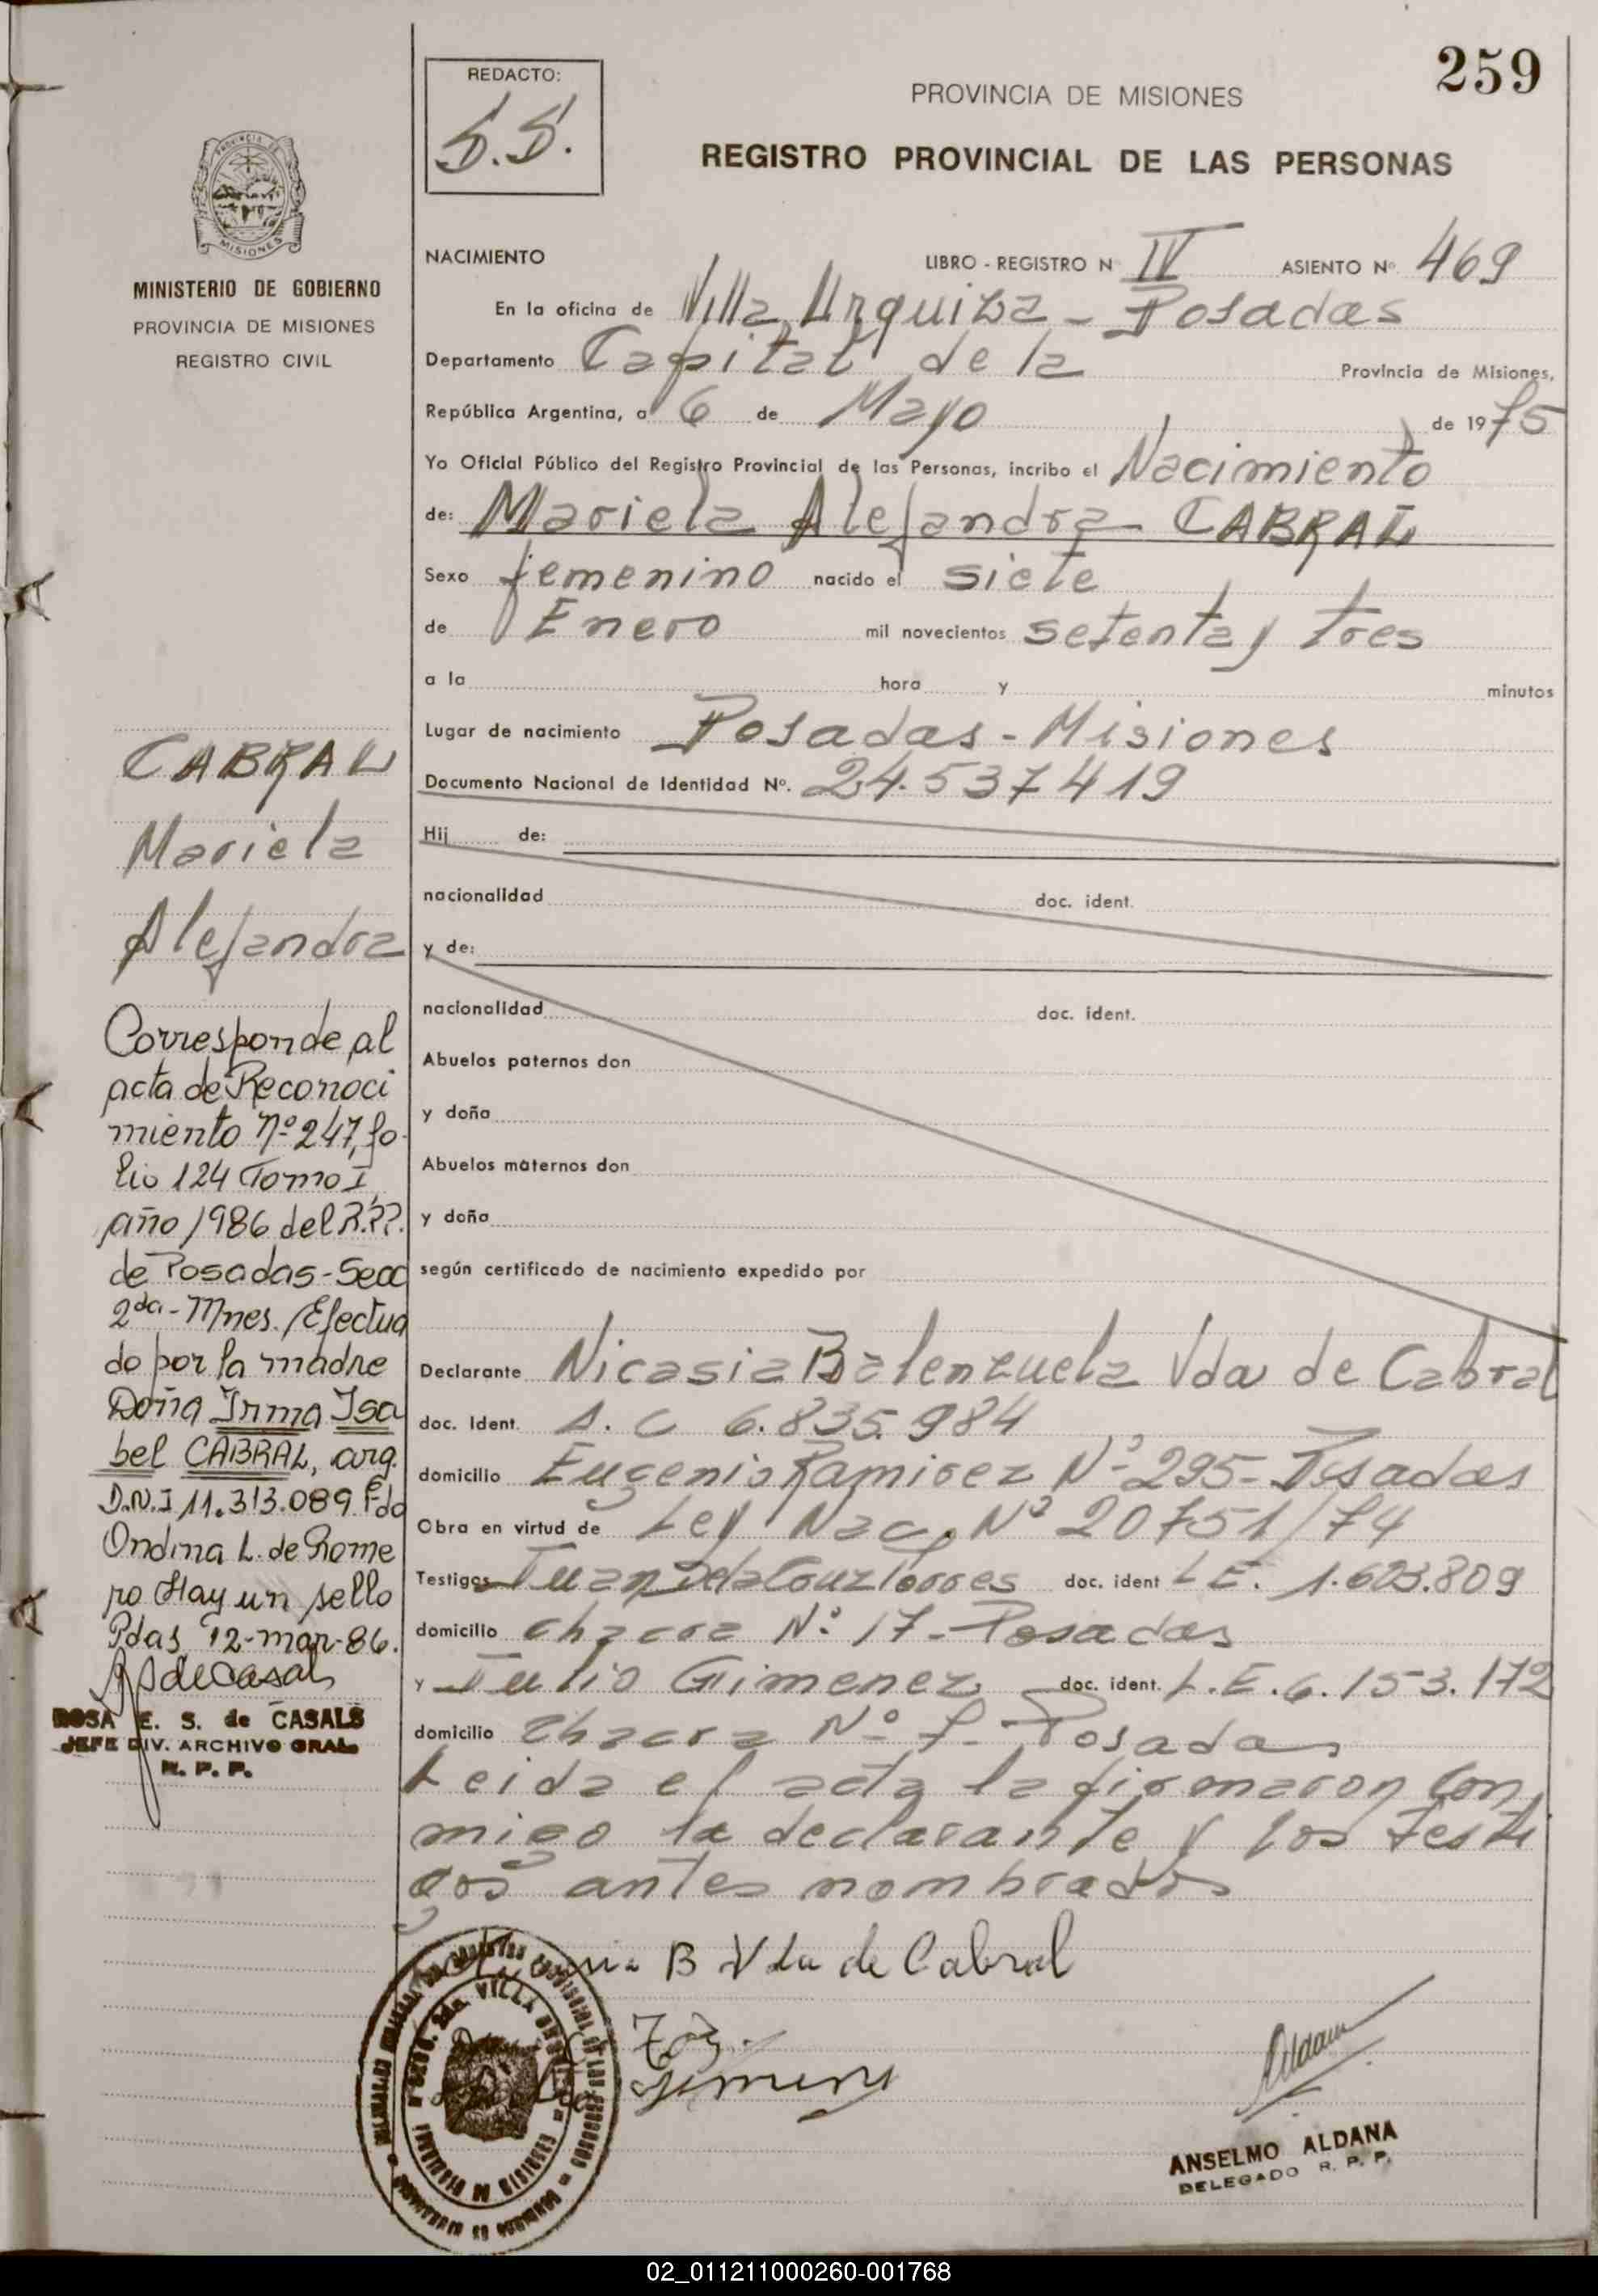 259
REDACTO:
S.S.
PROVINCIA DE MISIONES
REGISTRO PROVINCIAL DE LAS PERSONAS
PROVINCIA DE
MISIONES
MINISTERIO DE GOBIERNO
PROVINCIA DE MISIONES
REGISTRO CIVIL
NACIMIENTO LIBRO - REGISTRO N IV ASIENTO Nº 469
En la oficina de Villa Urquiza - Posadas
Departamento Capital de la Provincia de Misiones,
República Argentina, a 6 de Mayo de 1975
Yo Oficial Público del Registro Provincial de las Personas, incribo el Nacimiento
de: Mariela Alejandra CABRAL
Sexo femenino nacido el siete
de Enero mil novecientos setenta y tres
a la hora y minutos
Lugar de nacimiento Posadas - Misiones
Documento Nacional de Identidad Nº. 24.537419
Hij de:
nacionalidad doc. ident.
y de:
nacionalidad doc. ident.
Abuelos paternos don
y doña
Abuelos maternos don
y doña
según certificado de nacimiento expedido por
Declarante Nicasia Balenzuela Vda de Cabral
doc. Ident. A. C 6.835.984
domicilio Eugenio Ramirez Nº 295 - Posadas
Obra en virtud de Ley Nac. Nº 20751/74
Testigos Juan de la Cruz Torres doc. ident L E. 1.603.809
domicilio chacra Nº 17 - Posadas
y Julio Gimenez doc. ident. L.E. 6.153.172
domicilio chacra Nº 7 - Posadas
Leida el acta la firmaron con
migo la declarante y los testi
gos antes nombrados
CABRAL
Mariela
Alejandra
Corresponde al
acta de Reconoci
miento Nº 247, fo-
lio 124 Tomo I
año 1986 del R.P.P.
de Posadas - Secc
2da - Mnes. /Efectua
do por la madre
Doña Irma Isa
bel CABRAL, arg.
D.N.I 11.313.089 Fdo
Ondina L. de Rome
ro Hay un sello
Pdas 12-mar-86.
ROSA E. S. de CASALS
JEFE DIV. ARCHIVO GRAL.
R. P. P.
B Vda de Cabral
VILLA
ANSELMO ALDANA
DELEGADO R. P. P.
02_011211000260-001768